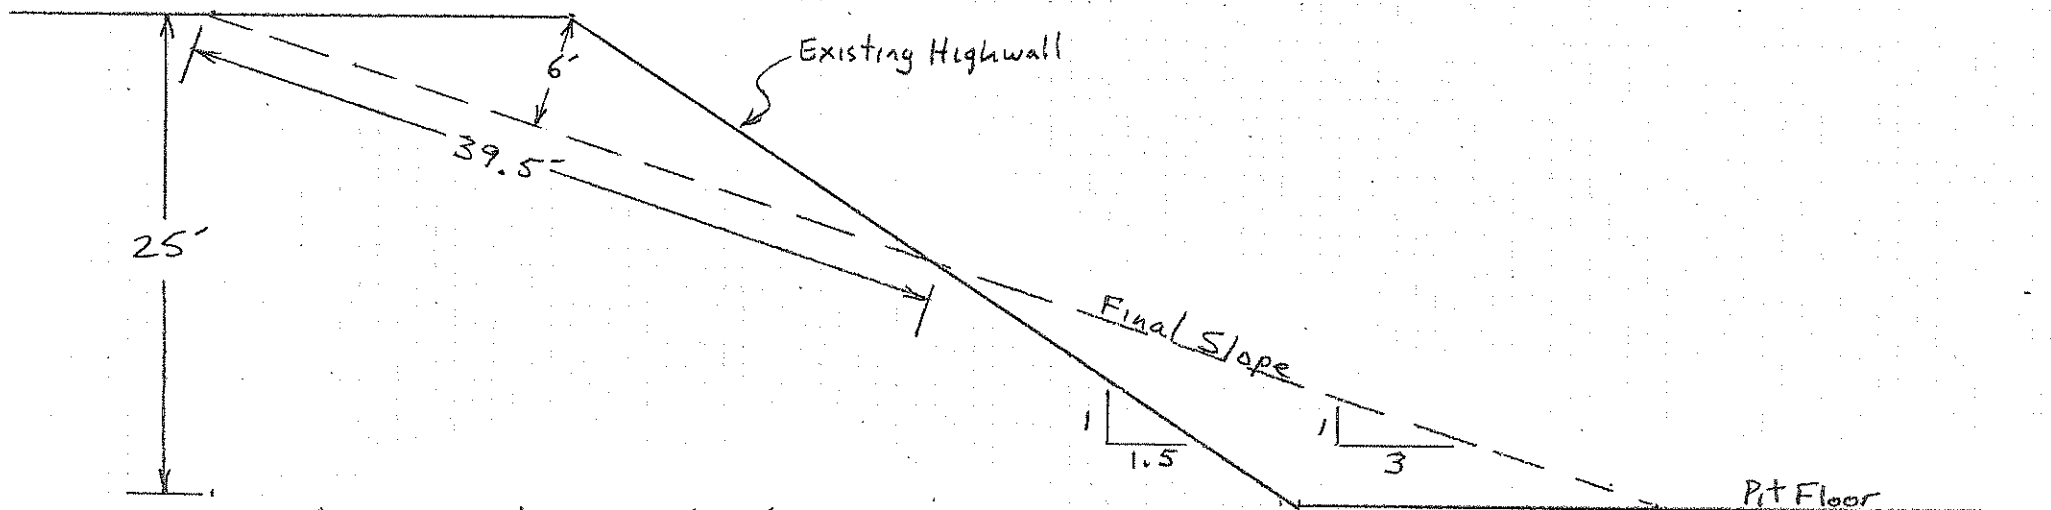 Existing Highwall
6'
39.5'
25'
Final Slope
1
1.5
1
3
Pit Floor